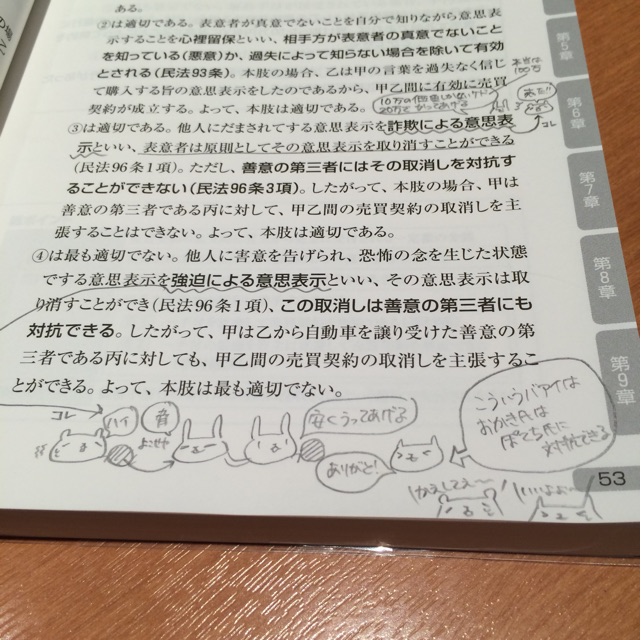 ある。
②は適切である。表意者が真意でないことを自分で知りながら意思表
示することを心裡留保といい、相手方が表意者の真意でないこと
を知っている(悪意)か、過失によって知らない場合を除いて有効
とされる(民法93条)。本肢の場合、乙は甲の言葉を過失なく信じ
て購入する旨の意思表示をしたのであるから、甲乙間に有効に売買
契約が成立する。よって、本肢は適切である。
本当は
100万
コレ
③は適切である。他人にだまされてする意思表示を詐欺による意思表
示といい、表意者は原則としてその意思表示を取り消すことができる
(民法96条1項)。ただし、善意の第三者にはその取消しを対抗す
ることができない(民法96条3項)。したがって、本肢の場合、甲は
善意の第三者である丙に対して、甲乙間の売買契約の取消しを主
張することはできない。よって、本肢は適切である。
④は最も適切でない。他人に害意を告げられ、恐怖の念を生じた状態
でする意思表示を強迫による意思表示といい、その意思表示は取
り消すことができ(民法96条1項)、この取消しは善意の第三者にも
対抗できる。したがって、甲は乙から自動車を譲り受けた善意の第
三者である丙に対しても、甲乙間の売買契約の取消しを主張するこ
とができる。よって、本肢は最も適切でない。
コレ
ハイ
脅
よこせや
安くうってあげる
ありがと!
こういうバアイは
おかき氏は
ぽてち氏に
対抗できる
かえしてぇ〜
いいよぉ〜
第5章
第6章
第7章
第8章
第9章
53